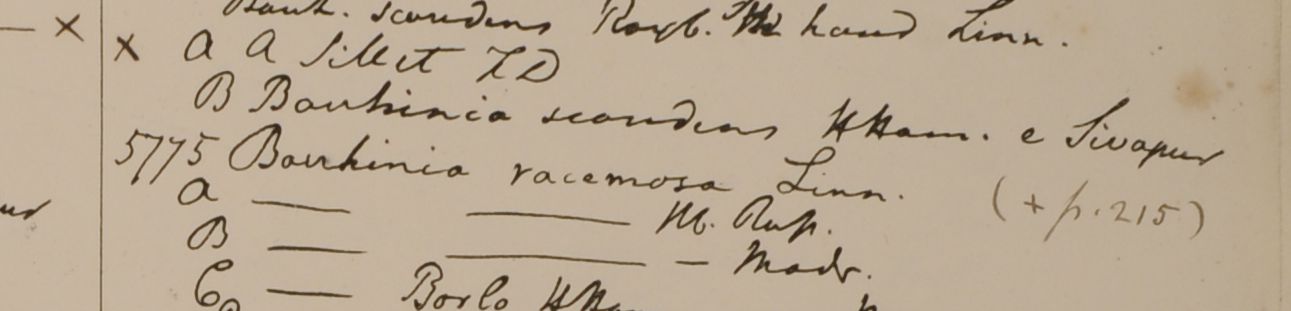 Bauh. scandens Roxb. haud Linn.
— x
x a A Sillet FD
B Bauhinia scandens HHam. e Sivapur
5775 Bauhinia racemosa Linn.
(+ p. 215)
a — — M. Rup.
B — — — Madr.
C — Borla HHam